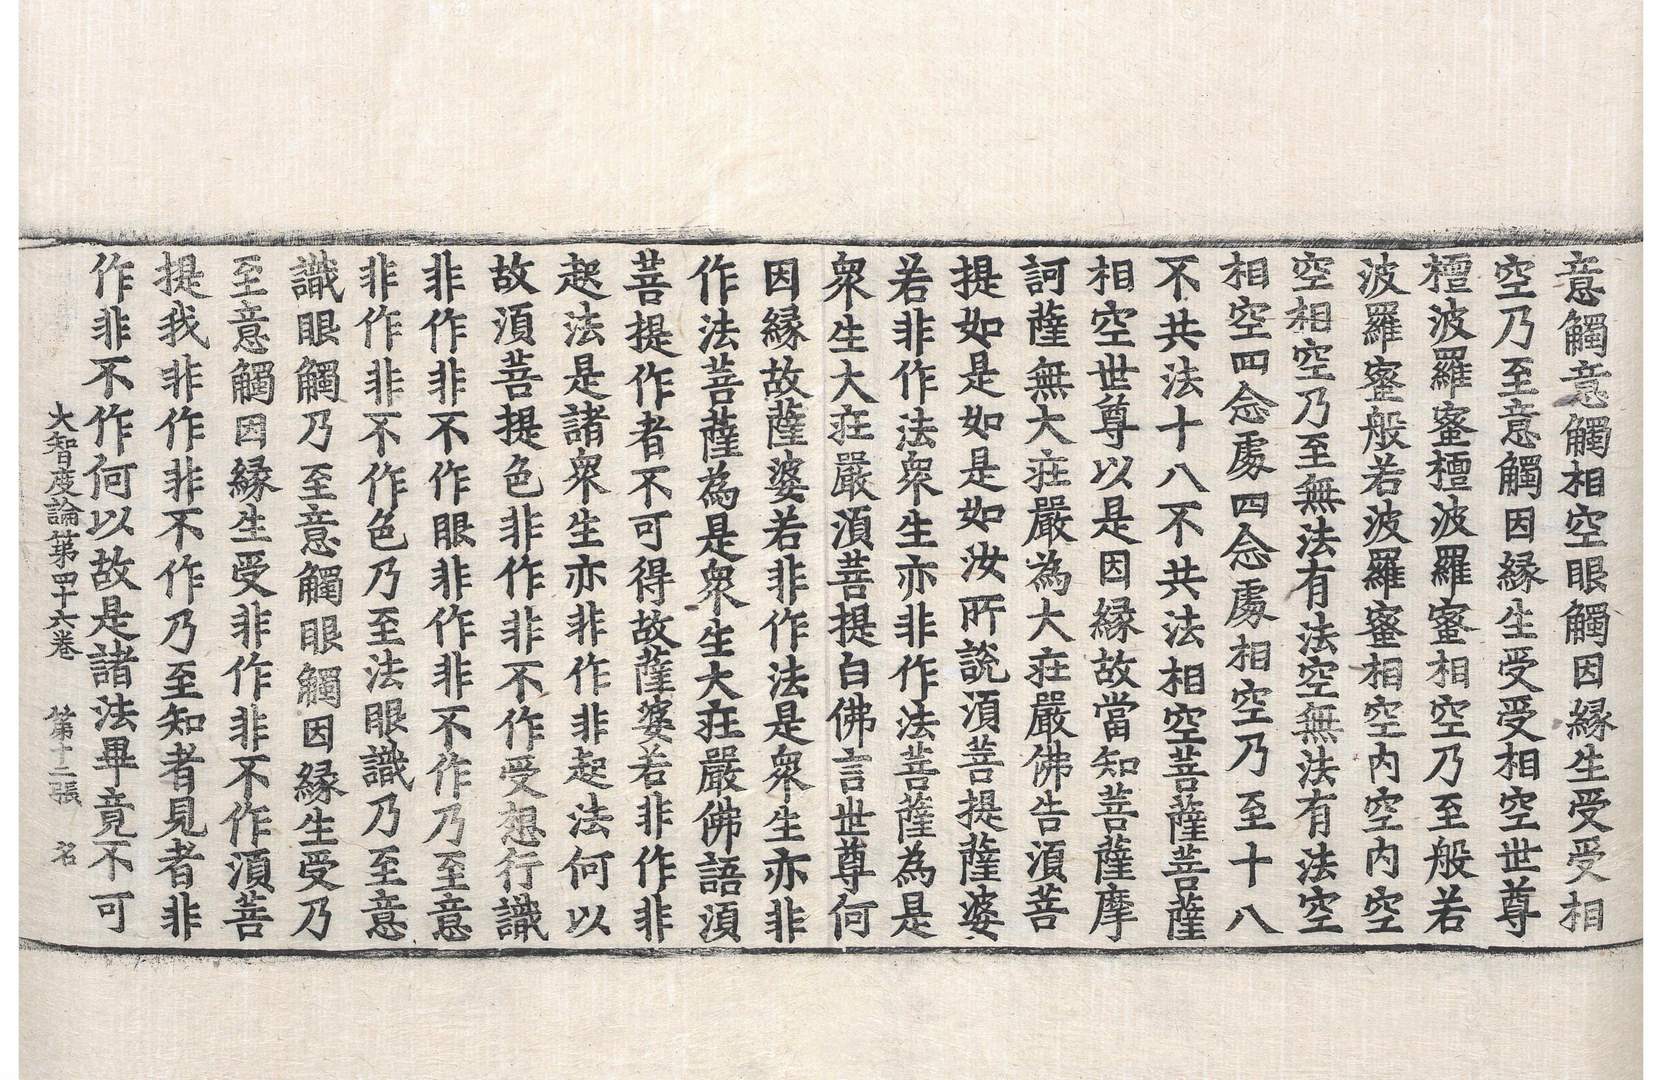 意觸意觸相空眼觸因緣生受受相
空乃至意觸因緣生受受相空世尊
檀波羅蜜檀波羅蜜相空乃至般若
波羅蜜般若波羅蜜相空内空内空
空相空乃至無法有法空無法有法空
相空四念處四念處相空乃至十八
不共法十八不共法相空菩薩菩薩
相空世尊以是因緣故當知菩薩摩
訶薩無大莊嚴為大莊嚴佛告湏菩
提如是如是如汝所說湏菩提薩婆
若非作法衆生亦非作法菩薩為是
衆生大莊嚴湏菩提白佛言世尊何
因緣故薩婆若非作法是衆生亦非
作法菩薩為是衆生大莊嚴佛語湏
菩提作者不可得故薩婆若非作非
起法是諸衆生亦非作非起法何以
故湏菩提色非作非不作受想行識
非作非不作眼非作非不作乃至意
非作非不作色乃至法眼識乃至意
識眼觸乃至意觸眼觸因緣生受乃
至意觸因緣生受非作非不作湏菩
提我非作非不作乃至知者見者非
作非不作何以故是諸法畢竟不可
大智度論第四十六卷　第十二張　名